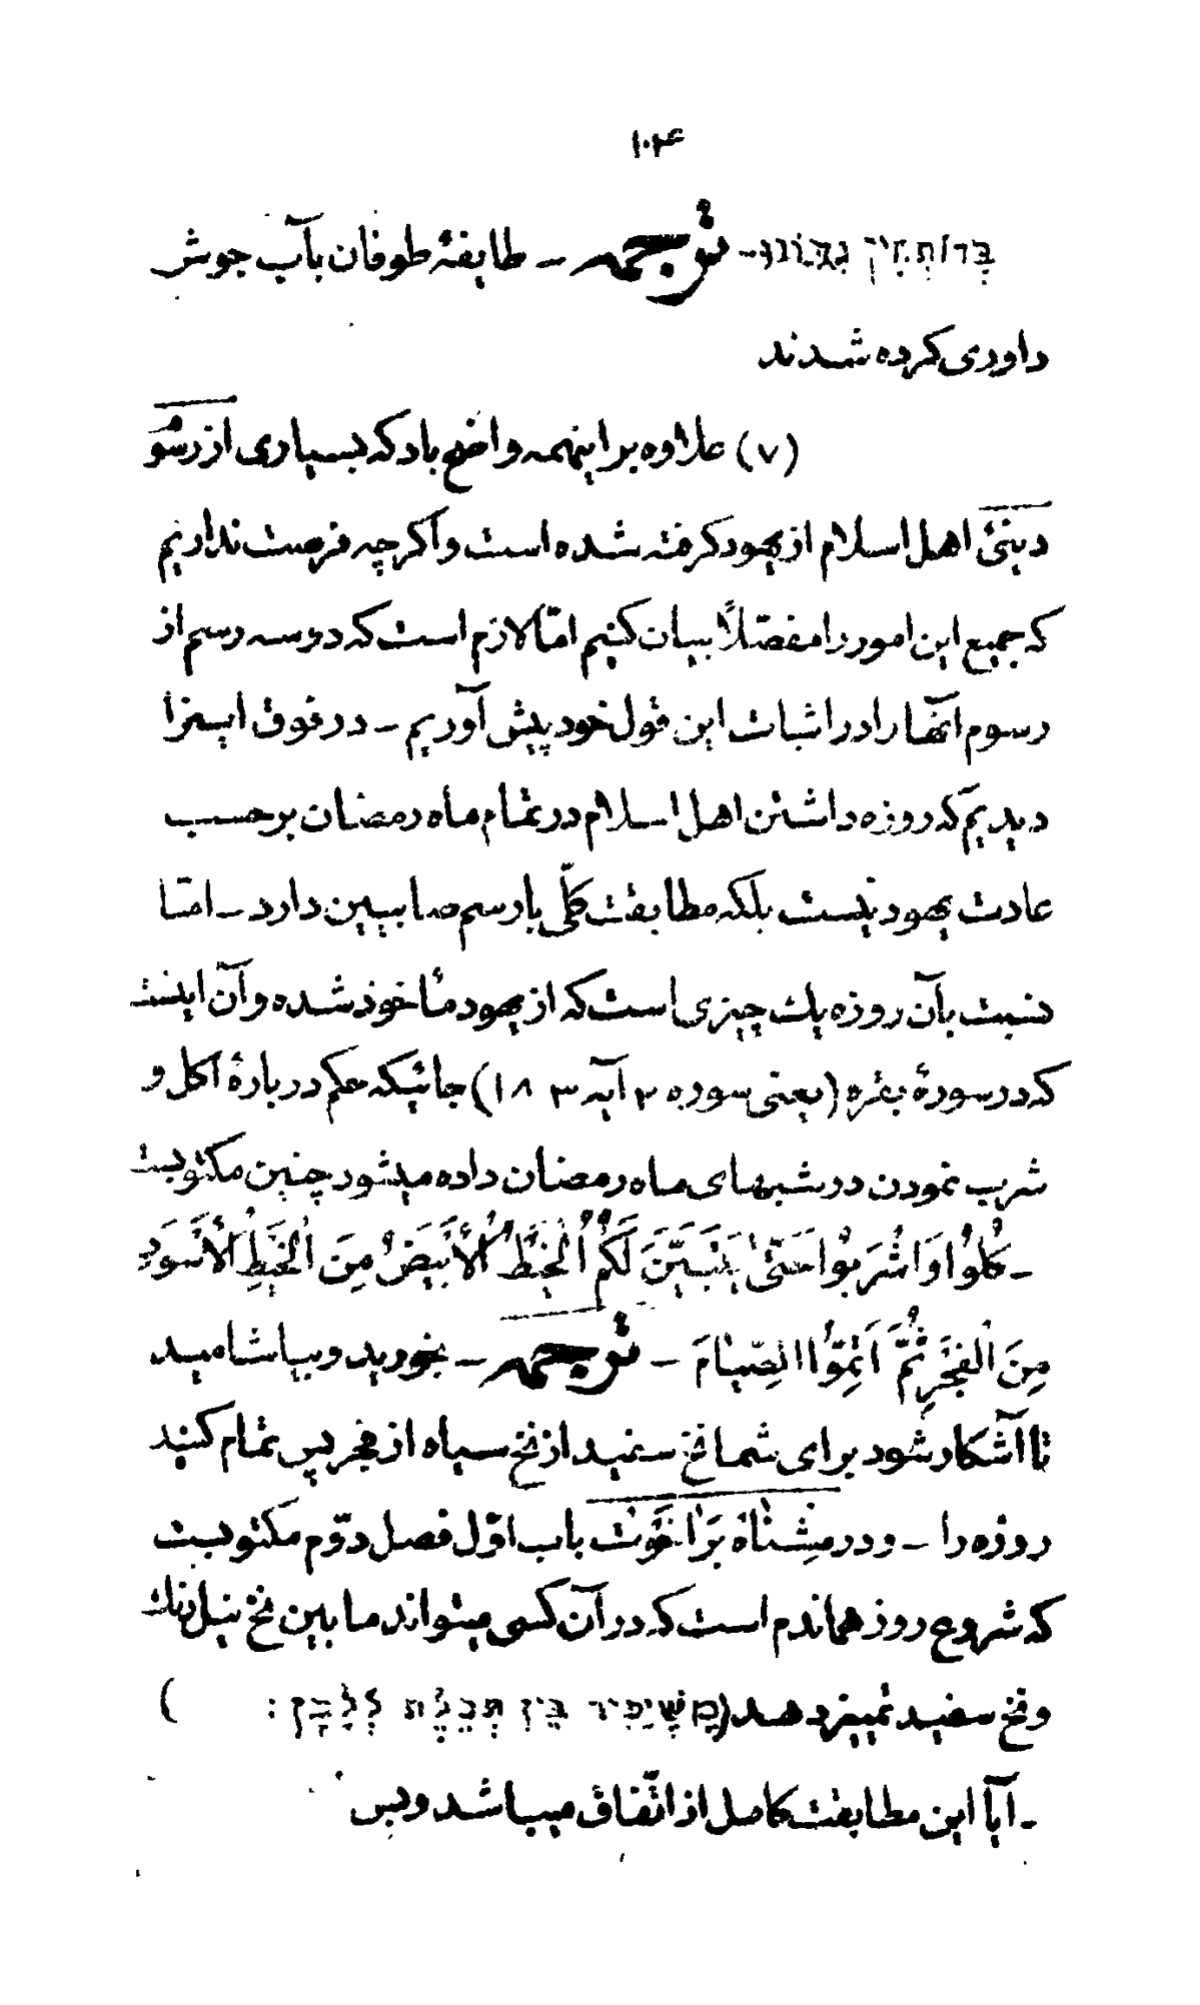 ۱۰۴
בְּרוֹתְחִין נִדּוֹנוּ- ترجمه – طایفهٔ طوفان بآب جوش
داوری کرده شدند
(۷) علاوه بر اینهمه واضح باد که بسیاری از رسو
دینیٔ اهل اسلام از یهود کرفته شده است واکرچه فرصت نداریم
که جمیع این امور را مفصّلاً بیان کنیم امّا لازم است که دو سه رسم از
رسوم آنها را در اثبات این قول خود پیش آوریم – در فوق اینرا
دیدیم که روزه داشتن اهل اسلام در تمام ماه رمضان بر حسب
عادت یهود نیست بلکه مطابقت کلّی با رسم صابیین دارد – امّا
نسبت بآن روزه یك چیزی است که از یهود مأخوذ شده و آن اینست
که در سورهٔ بقره (یعنی سوره ۲ آیه ۱۸۳) جائیکه حکم در بارهٔ اکل و
شرب نمودن در شبهای ماه رمضان داده میشود چنین مکتوبست
– کُلُوْا وَاشْرَبُوْا حَتّیٰ یَتَبَیَّنَ لَکُمُ الْخَیْطُ الْأَبْیَضُ مِنَ الْخَیْطِ الْأَسْوَدِ
مِنَ الْفَجْرِ ثُمَّ اَتِمُّوْا الصِّیٰامَ – ترجمه – بخورید و بیاشامید
تا آشکار شود برای شما نخ سفید از نخ سیاه از فجر پس تمام کنید
روزه را – و در مِشْنٰاهْ بَرٰاخَوْتْ باب اوّل فصل دوّم مکتوبست
که شروع روز هماندم است که در آن کسی میتواند ما بین نخ نیل رنك
و نخ سفید تمییز دهد (מִשֶּׁיַּכִּיר בֵּין תְּכֵלֶת לְלָבָן: )
– آیا این مطابقت کامل از اتّفاق میباشد و بس